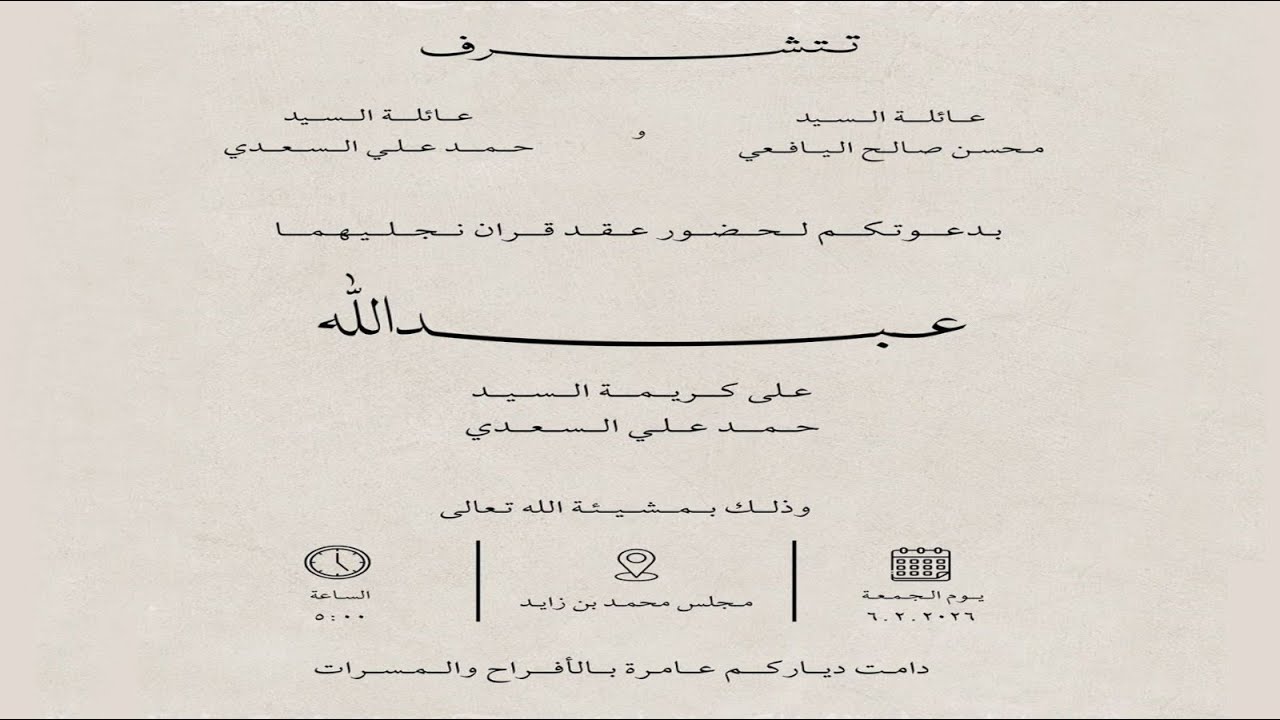 تتشرف
عائلة السيد
محسن صالح اليافعي
و
عائلة السيد
حمد علي السعدي
بدعوتكم لحضور عقد قران نجليهما
عبدالله
على كريمة السيد
حمد علي السعدي
وذلك بمشيئة الله تعالى
يوم الجمعة
٦.٢.٢٠٢٦
مجلس محمد بن زايد
الساعة
٥:٠٠
دامت دياركم عامرة بالأفراح والمسرات